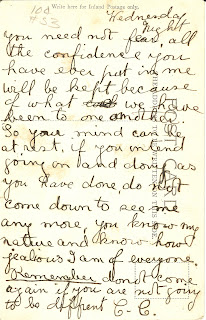 Write here for Inland Postage only.
108
#53
Wednesday
Night
you need not fear, all
the confidence you
have ever put in me
will be kept because
of what we have
been to one another.
So your mind can be
at rest, if you intend
going on and doing as
you have done, do not
come down to see me
any more, you know my
nature and know how
jealous I am of everyone.
Remember do not come
again if you are not going
to be diffrent C-C.